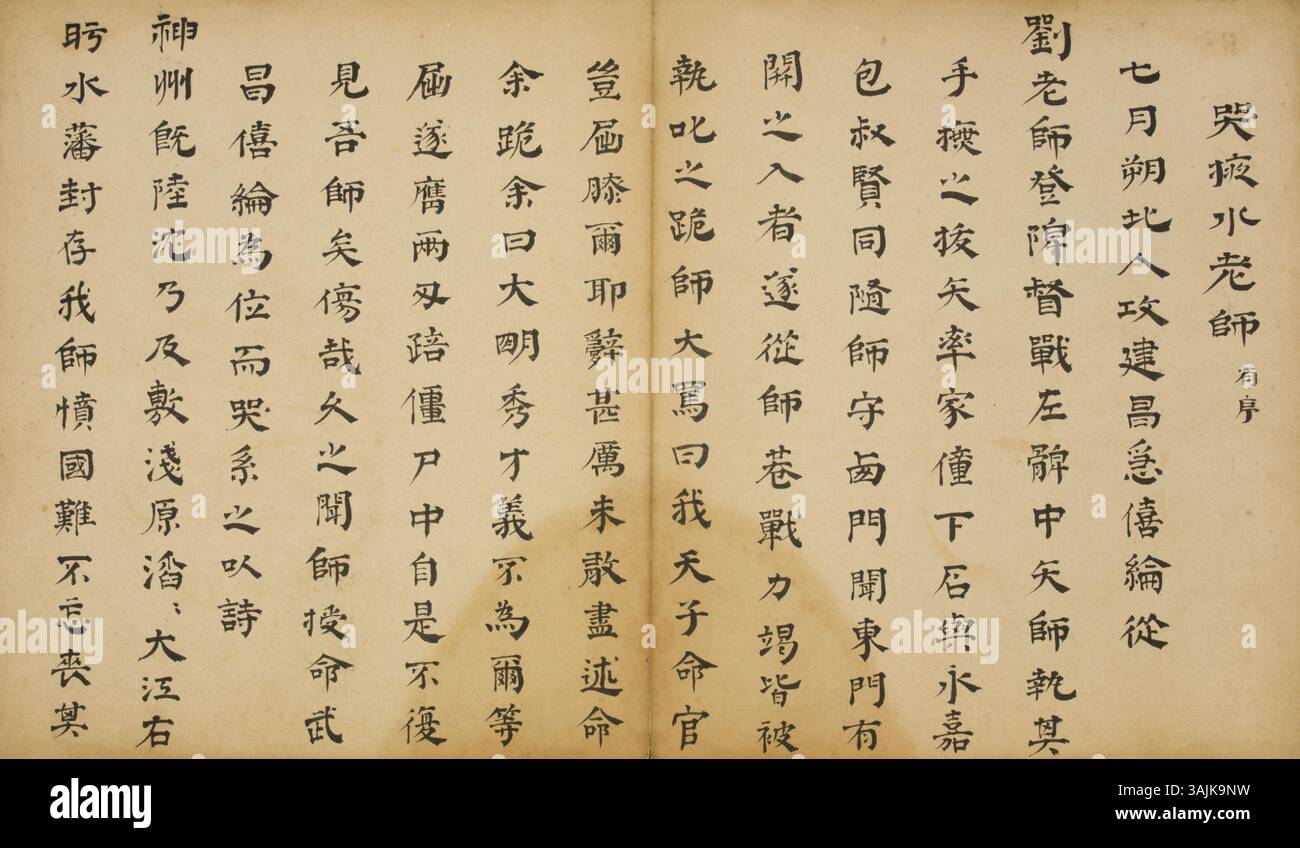 哭掖水老師 有序
七月朔北人攻建昌急僖綸從
劉老師登陴督戰左髀中矢師執其
手撫之拔矢率家僮下石與永嘉
包叔賢同隨師守西門聞東門有
開之入者遂從師巷戰力竭皆被
執叱之跪師大罵曰我天子命官
豈屈膝爾耶辭甚厲未敢盡述命
余跪余曰大明秀才義不為爾等
屈遂膺兩刃踣僵尸中自是不復
見吾師矣傷哉久之聞師授命武
昌僖綸為位而哭系之以詩
神州旣陸沈乃及敷淺原滔〻大江右
盱水藩封存我師憤國難不忘喪其
alamy
Image ID: 3AJK9NW
www.alamy.com